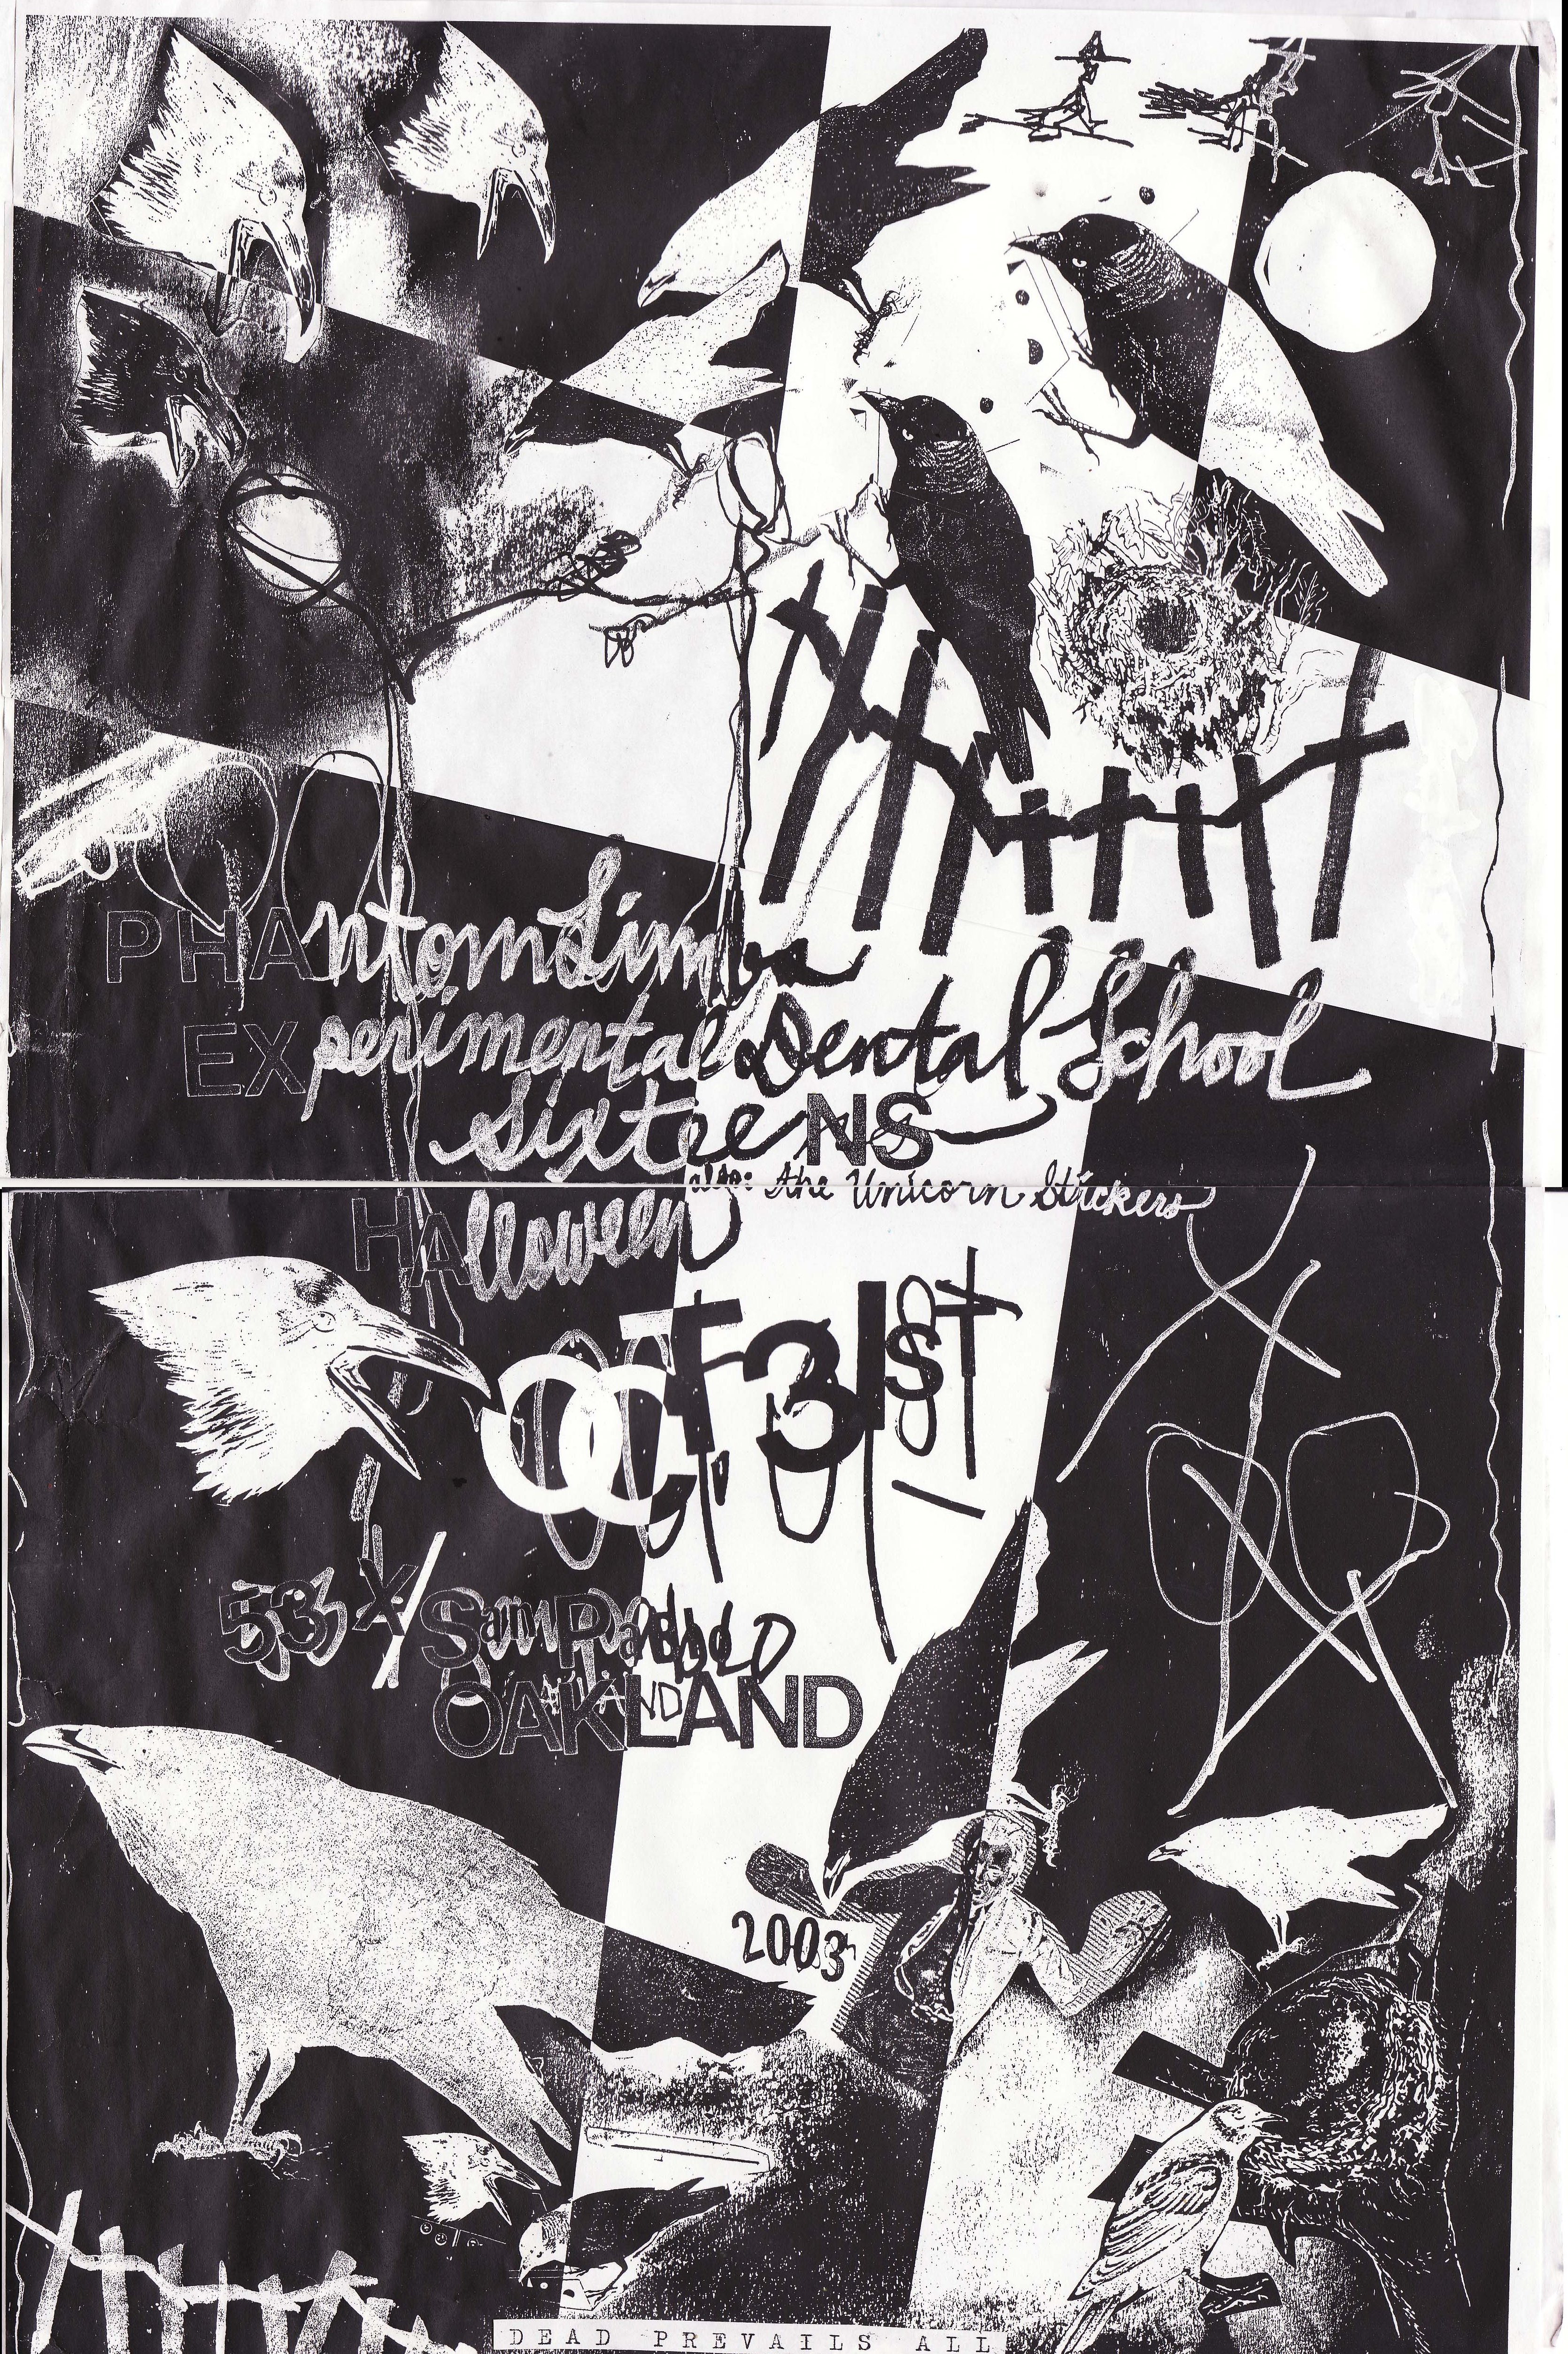 PHAntom Limbs
EXperimental Dental School
SixteeNS
also: the Unicorn Stickers
HAlloween
OCT 31st
San Pablo
OAKLAND
2003
DEAD PREVAILS ALL